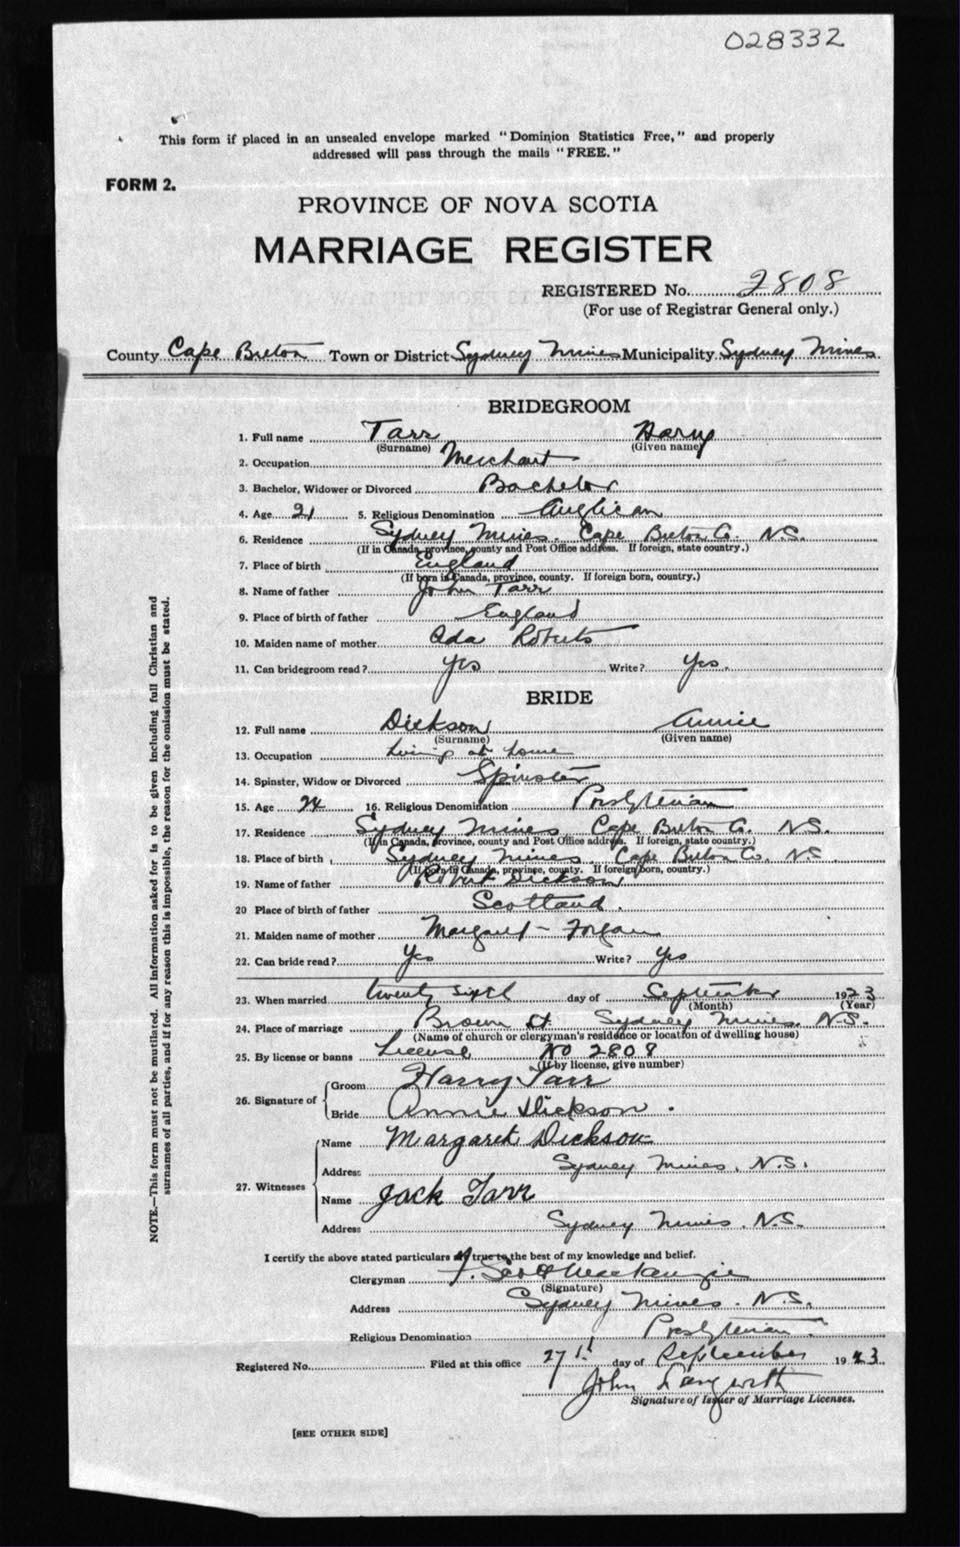 028332
This form if placed in an unsealed envelope marked "Dominion Statistics Free," and properly
addressed will pass through the mails "FREE."
FORM 2.
PROVINCE OF NOVA SCOTIA
MARRIAGE REGISTER
REGISTERED No. 2808
(For use of Registrar General only.)
County Cape Breton Town or District Sydney Mines Municipality Sydney Mines
BRIDEGROOM
1. Full name Tarr Harry
(Surname) (Given name)
2. Occupation Merchant
3. Bachelor, Widower or Divorced Bachelor
4. Age 21 5. Religious Denomination Anglican
6. Residence Sydney Mines. Cape Breton Co. N.S.
(If in Canada, province, county and Post Office address. If foreign, state country.)
7. Place of birth England
(If born in Canada, province, county. If foreign born, country.)
8. Name of father John Tarr
9. Place of birth of father England
10. Maiden name of mother Ada Roberts
11. Can bridegroom read? Yes Write? Yes.
BRIDE
12. Full name Dickson Annie
(Surname) (Given name)
13. Occupation Living at home
14. Spinster, Widow or Divorced Spinster
15. Age 24 16. Religious Denomination Presbyterian
17. Residence Sydney Mines Cape Breton Co. N.S.
(If in Canada, province, county and Post Office address. If foreign, state country.)
18. Place of birth Sydney Mines Cape Breton Co. N.S
(If born in Canada, province, county. If foreign born, country.)
19. Name of father Robert Dickson
20 Place of birth of father Scotland.
21. Maiden name of mother Margaret - Forgan
22. Can bride read? Yes Write? Yes
23. When married twenty sixth day of September 1923
(Month) (Year)
24. Place of marriage Brown St. Sydney Mines. N.S.
(Name of church or clergyman's residence or location of dwelling house)
25. By license or banns License No 2808
(If by license, give number)
26. Signature of Groom Harry Tarr
Bride Annie Dickson.
27. Witnesses Name Margaret Dickson
Address Sydney Mines, N.S.
Name Jack Tarr
Address Sydney Mines. N.S.
I certify the above stated particulars true to the best of my knowledge and belief.
Clergyman J. Scott Mackenzie
(Signature)
Address Sydney Mines. N.S.
Religious Denomination Presbyterian.
Registered No. Filed at this office 27th day of September 1923
John Langwith
Signature of Issuer of Marriage Licenses.
[SEE OTHER SIDE]
NOTE.—This form must not be mutilated. All information asked for is to be given including full Christian and
surnames of all parties, and if for any reason this is impossible, the reason for the omission must be stated.